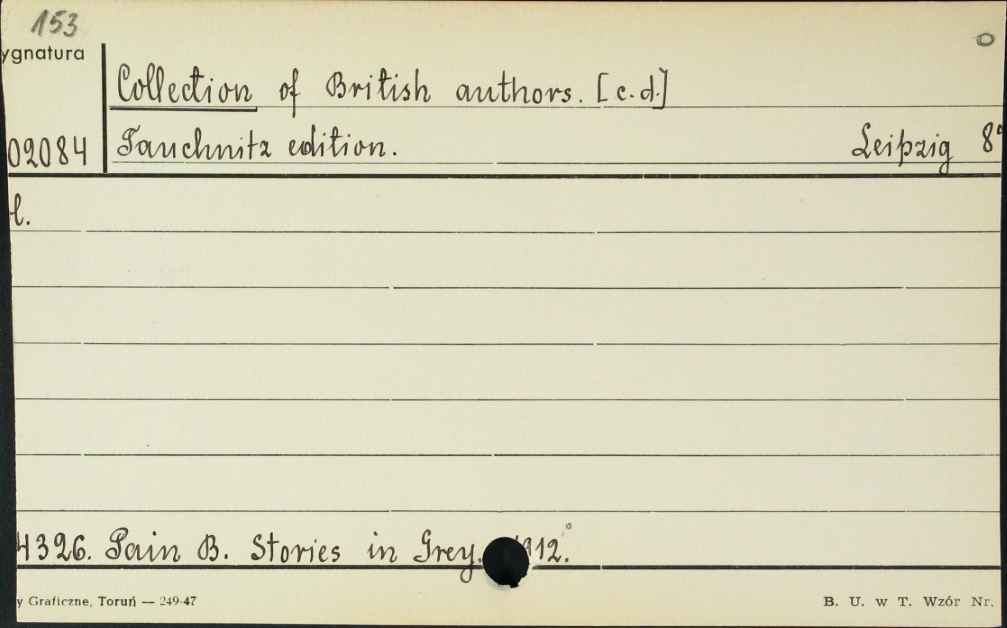 153
ygnatura
Collection of British authors. [c.d.]
02084 Tauchnitz edition. Leipzig 8°
l.
4326. Pain B. Stories in Grey. 1912.
y Graficzne, Toruń — 249-47 B. U. w T. Wzór Nr.